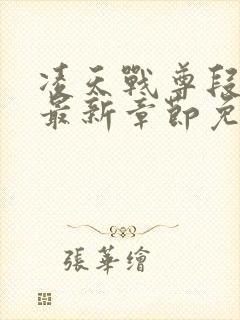 凌天戰尊段
最新章節免
張華繪